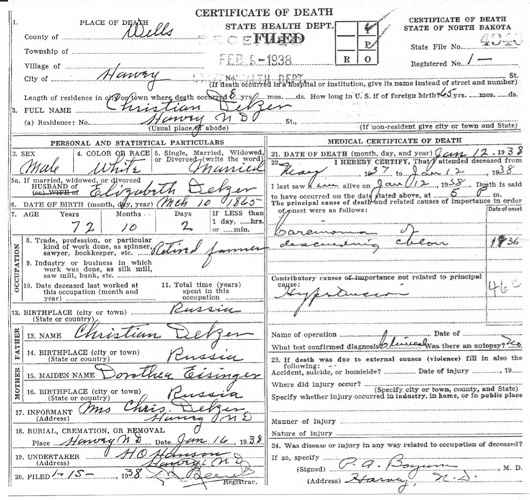 CERTIFICATE OF DEATH
STATE HEALTH DEPT.
FILED
FEB 8-1938
CERTIFICATE OF DEATH
STATE OF NORTH DAKOTA
State File No.
Registered No. 1-
1. PLACE OF DEATH
County of Wells
Township of
Village of
City of Harvey
(If death occurred in a hospital or institution, give its name instead of street and number)
Length of residence in city or town where death occurred yrs. mos. ds. How long in U. S. if of foreign birth? 45 yrs. mos. ds.
2. FULL NAME Christian Delzer
(a) Residence: Harvey N D
(Usual place of abode)
(If non-resident give city or town and State)
PERSONAL AND STATISTICAL PARTICULARS
3. SEX Male
4. COLOR OR RACE White
5. Single, Married, Widowed, or Divorced (write the word) Married
5a. If married, widowed, or divorced
HUSBAND of
(or) WIFE of Elizabeth Delzer
6. DATE OF BIRTH (month, day, year) Mch 10 1865
7. AGE Years 72 Months 10 Days 2 If LESS than 1 day, hrs. or min.
OCCUPATION
8. Trade, profession, or particular kind of work done, as spinner, sawyer, bookkeeper, etc. Retired farmer
9. Industry or business in which work was done, as silk mill, saw mill, bank, etc.
10. Date deceased last worked at this occupation (month and year)
11. Total time (years) spent in this occupation
12. BIRTHPLACE (city or town) (State or country) Russia
FATHER
13. NAME Christian Delzer
14. BIRTHPLACE (city or town) (State or country) Russia
MOTHER
15. MAIDEN NAME Dorothea Eisinger
16. BIRTHPLACE (city or town) (State or country) Russia
17. INFORMANT Mrs Chris. Delzer
(Address) Harvey N D
18. BURIAL, CREMATION, OR REMOVAL
Place Harvey N D Date Jan 16, 1938
19. UNDERTAKER H O Hanson
(Address) Harvey, N D
20. FILED 1-15-, 1938
Registrar.
MEDICAL CERTIFICATE OF DEATH
21. DATE OF DEATH (month, day, and year) Jan 12, 1938
22. I HEREBY CERTIFY, That I attended deceased from
1937 to Jan 12, 1938
I last saw him alive on Jan 12, 1938. Death is said
to have occurred on the date stated above, at 5 P.
The principal cause of death and related causes of importance in order of onset were as follows:
Carcinoma of
descending colon 1936
Contributory causes of importance not related to principal cause:
Hypertension
46
Name of operation Date of
What test confirmed diagnosis? Clinical Was there an autopsy? No
23. If death was due to external causes (violence) fill in also the following:
Accident, suicide, or homicide? Date of injury, 19
Where did injury occur?
(Specify city or town, county, and State)
Specify whether injury occurred in industry, in home, or in public place
Manner of injury
Nature of injury
24. Was disease or injury in any way related to occupation of deceased?
If so, specify
(Signed) P. A. Boyum, M. D.
(Address) Harvey, N. D.